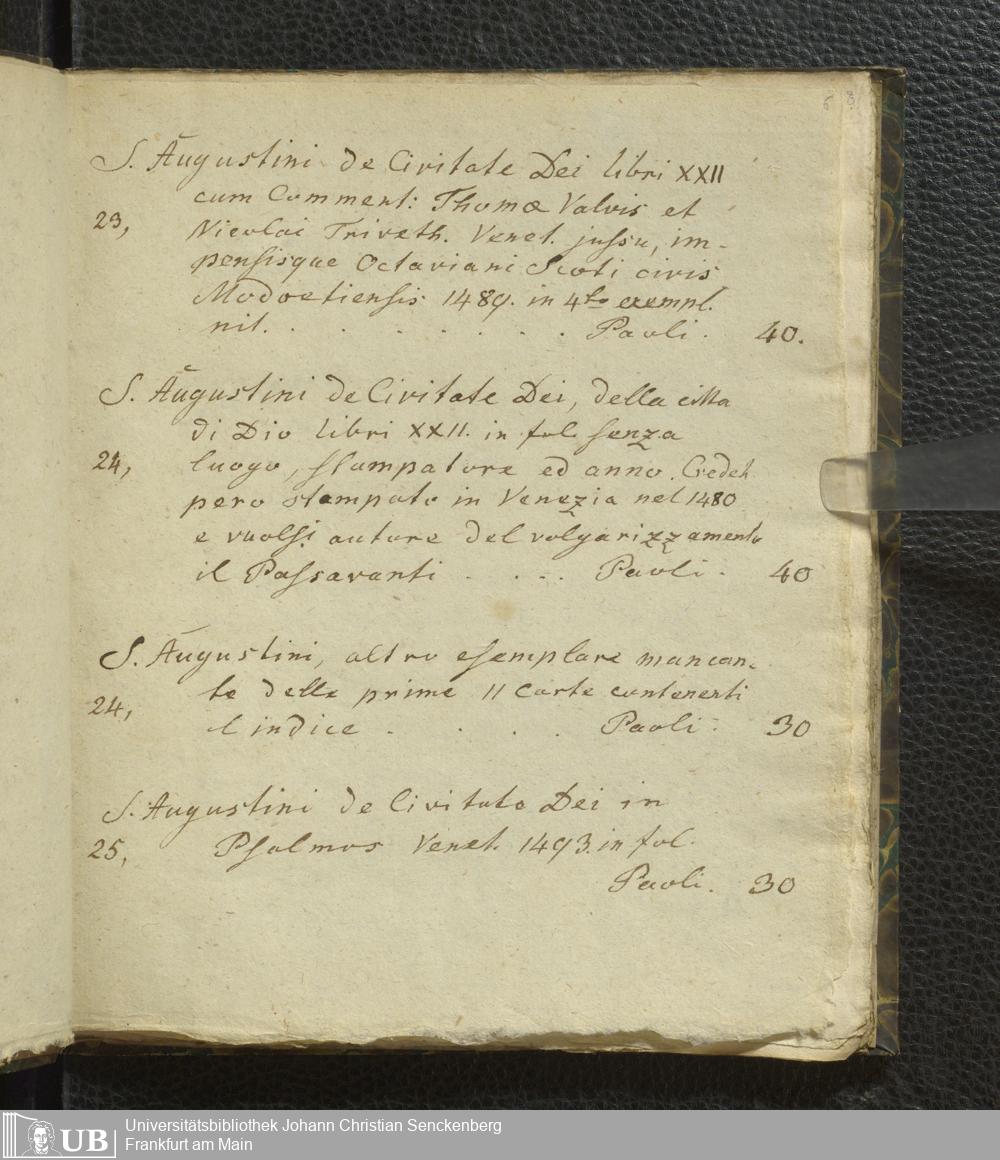 6 8
S. Augustini de Civitate Dei libri XXII
cum Comment: Thomæ Valois et
23,
Nicolai Triveth. Venet. jussu, im-
pensisque Octaviani Scoti civis
Modoetiensis 1489. in 4to exempl.
nit. . . . . . . . Paoli. 40.
S. Augustini de Civitate Dei, della citta
di Dio libri XXII. in fol. senza
24, luogo, stampatore ed anno. Credesi
pero stampato in Venezia nel 1480
e vuolsi autore del volgarizzamento
il Passavanti . . . . Paoli. 40
S. Augustini, altro esemplare mancan-
te delle prime 11 carte contenenti
24,
l indice . . . . Paoli. 30
S. Augustini de Civitate Dei in
25, Psalmos Venet. 1493. in fol.
Paoli. 30
UB
Universitätsbibliothek Johann Christian Senckenberg
Frankfurt am Main